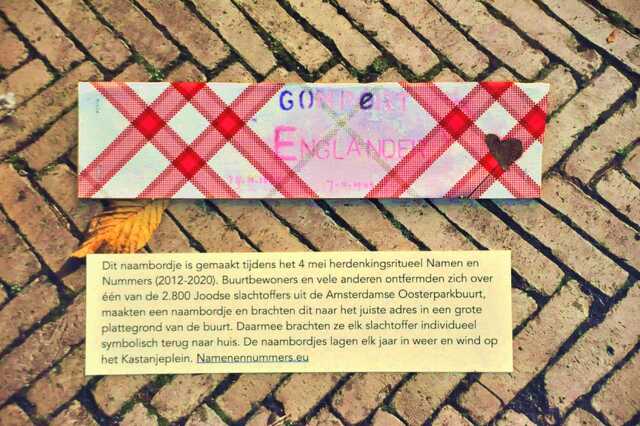 ENGLANDER
Dit naambordje is gemaakt tijdens het 4 mei herdenkingsritueel Namen en
Nummers (2012-2020). Buurtbewoners en vele anderen ontfermden zich over
één van de 2.800 Joodse slachtoffers uit de Amsterdamse Oosterparkbuurt,
maakten een naambordje en brachten dit naar het juiste adres in een grote
plattegrond van de buurt. Daarmee brachten ze elk slachtoffer individueel
symbolisch terug naar huis. De naambordjes lagen elk jaar in weer en wind op
het Kastanjeplein. Namenennummers.eu